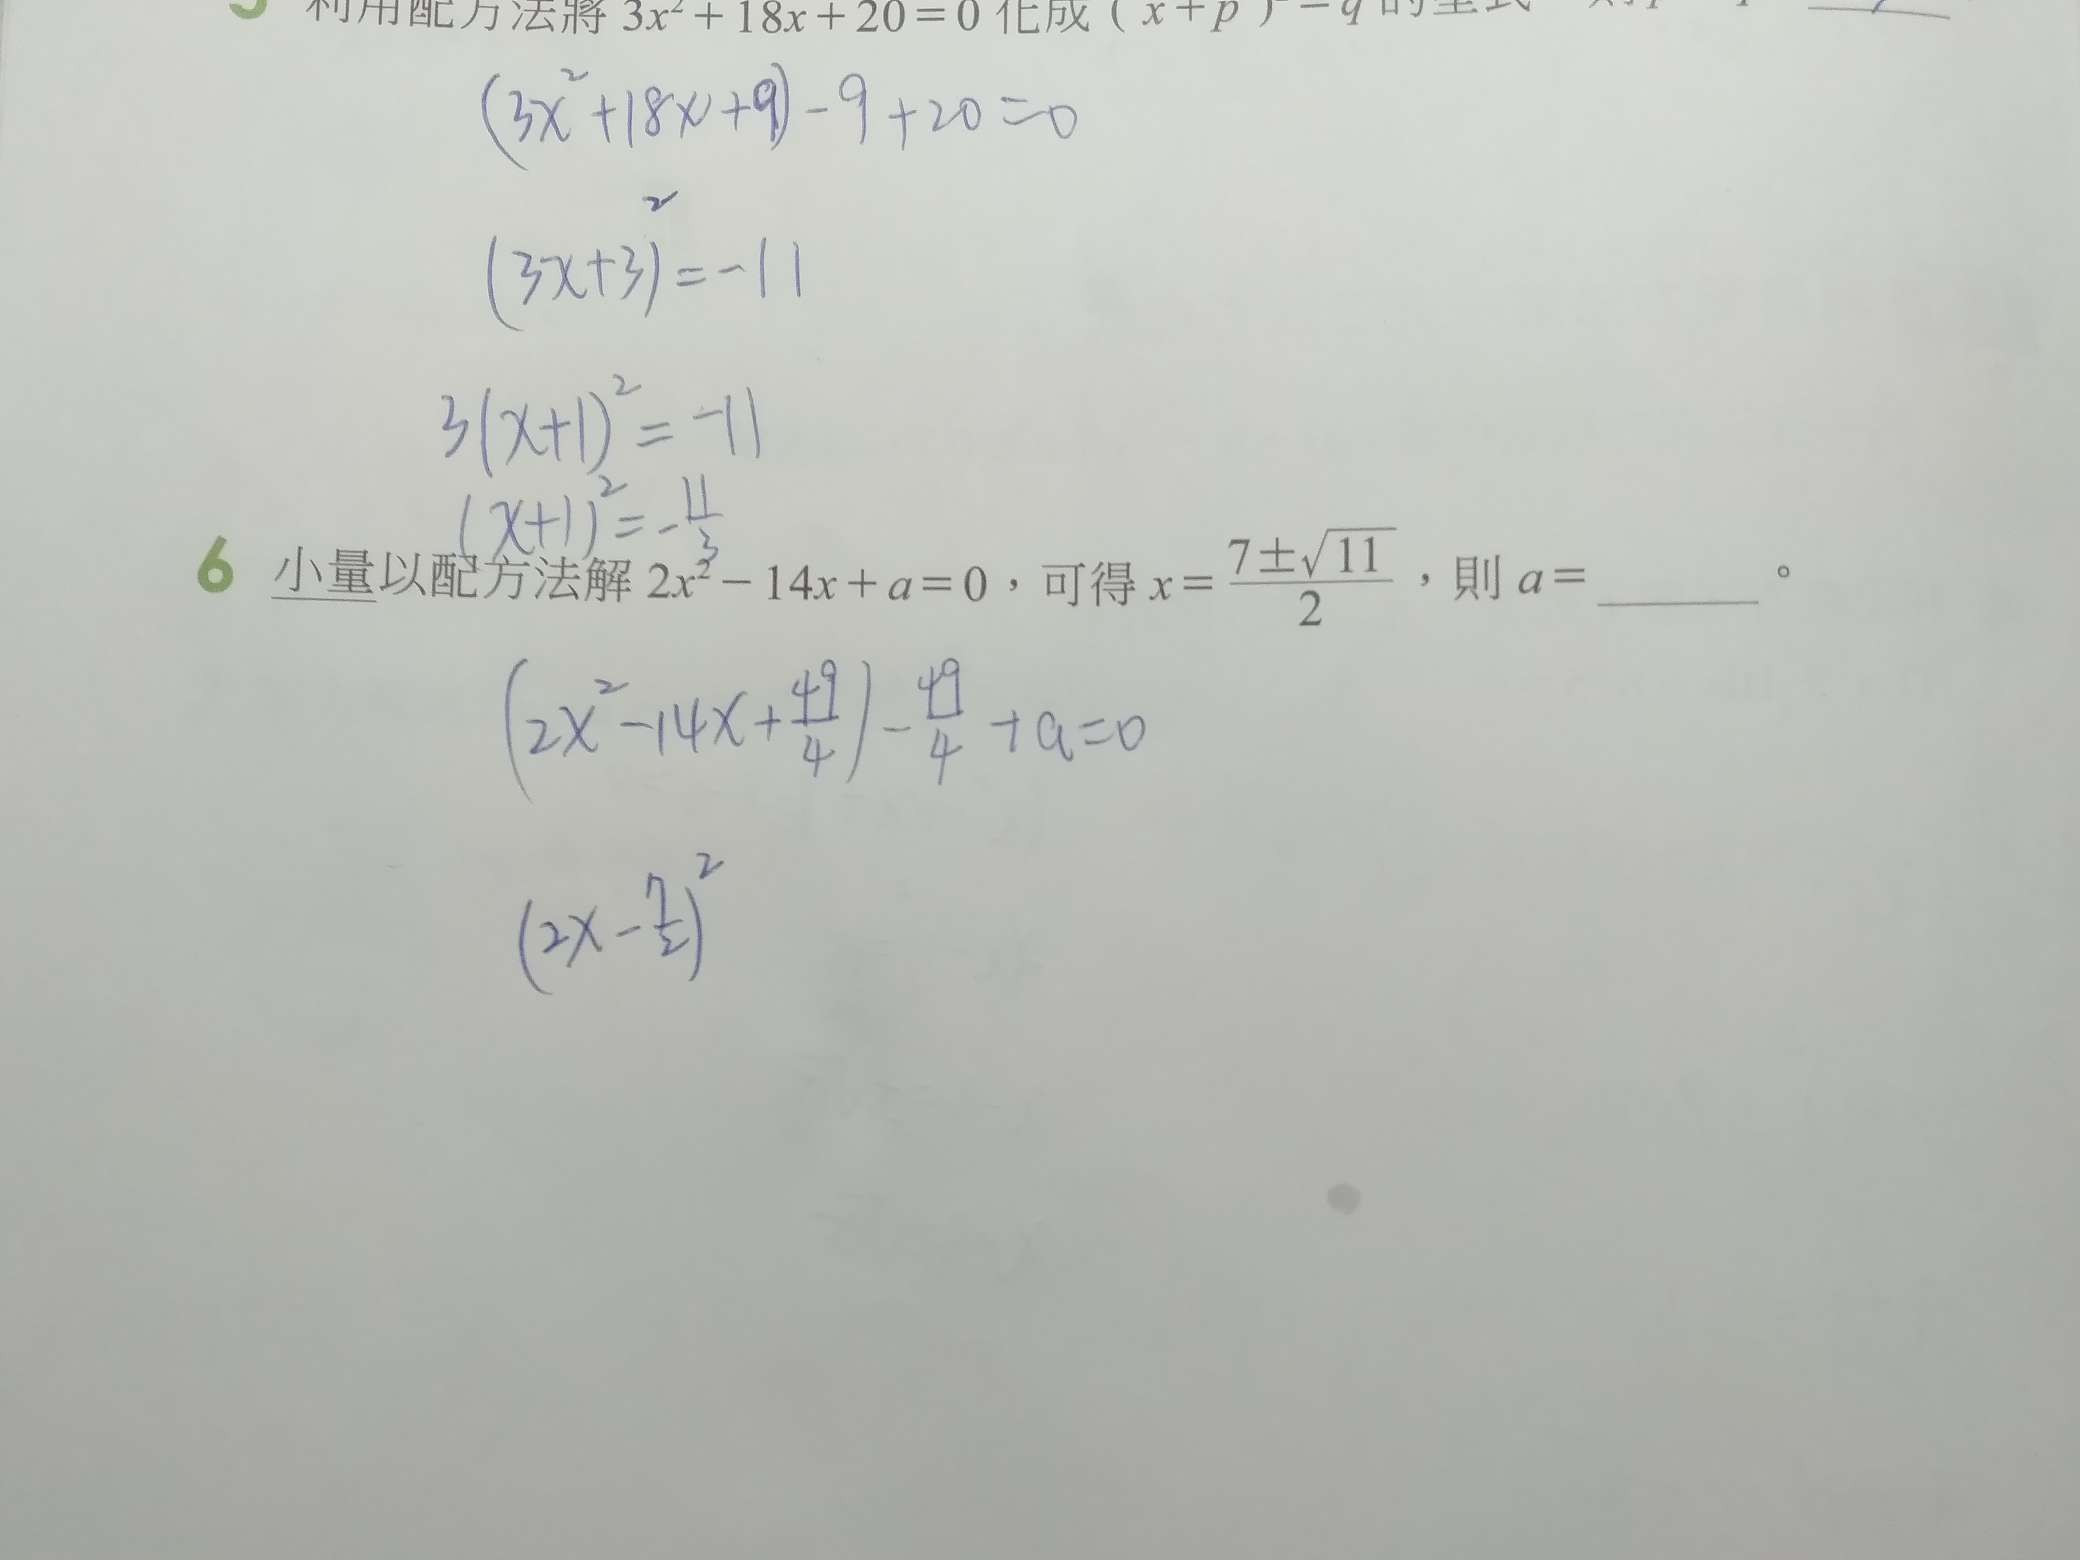 利用配方法將 3x² + 18x + 20 = 0 化成 ( x + p )² = q 的型式
(3x²+18x+9)-9+20=0
(3x+3)²=-11
3(x+1)²=-11
(x+1)²=-11/3
6 小量以配方法解 2x² - 14x + a = 0，可得 x = (7±√11)/2，則 a = ______。
(2x²-14x+49/4)-49/4+a=0
(2x-7/2)²